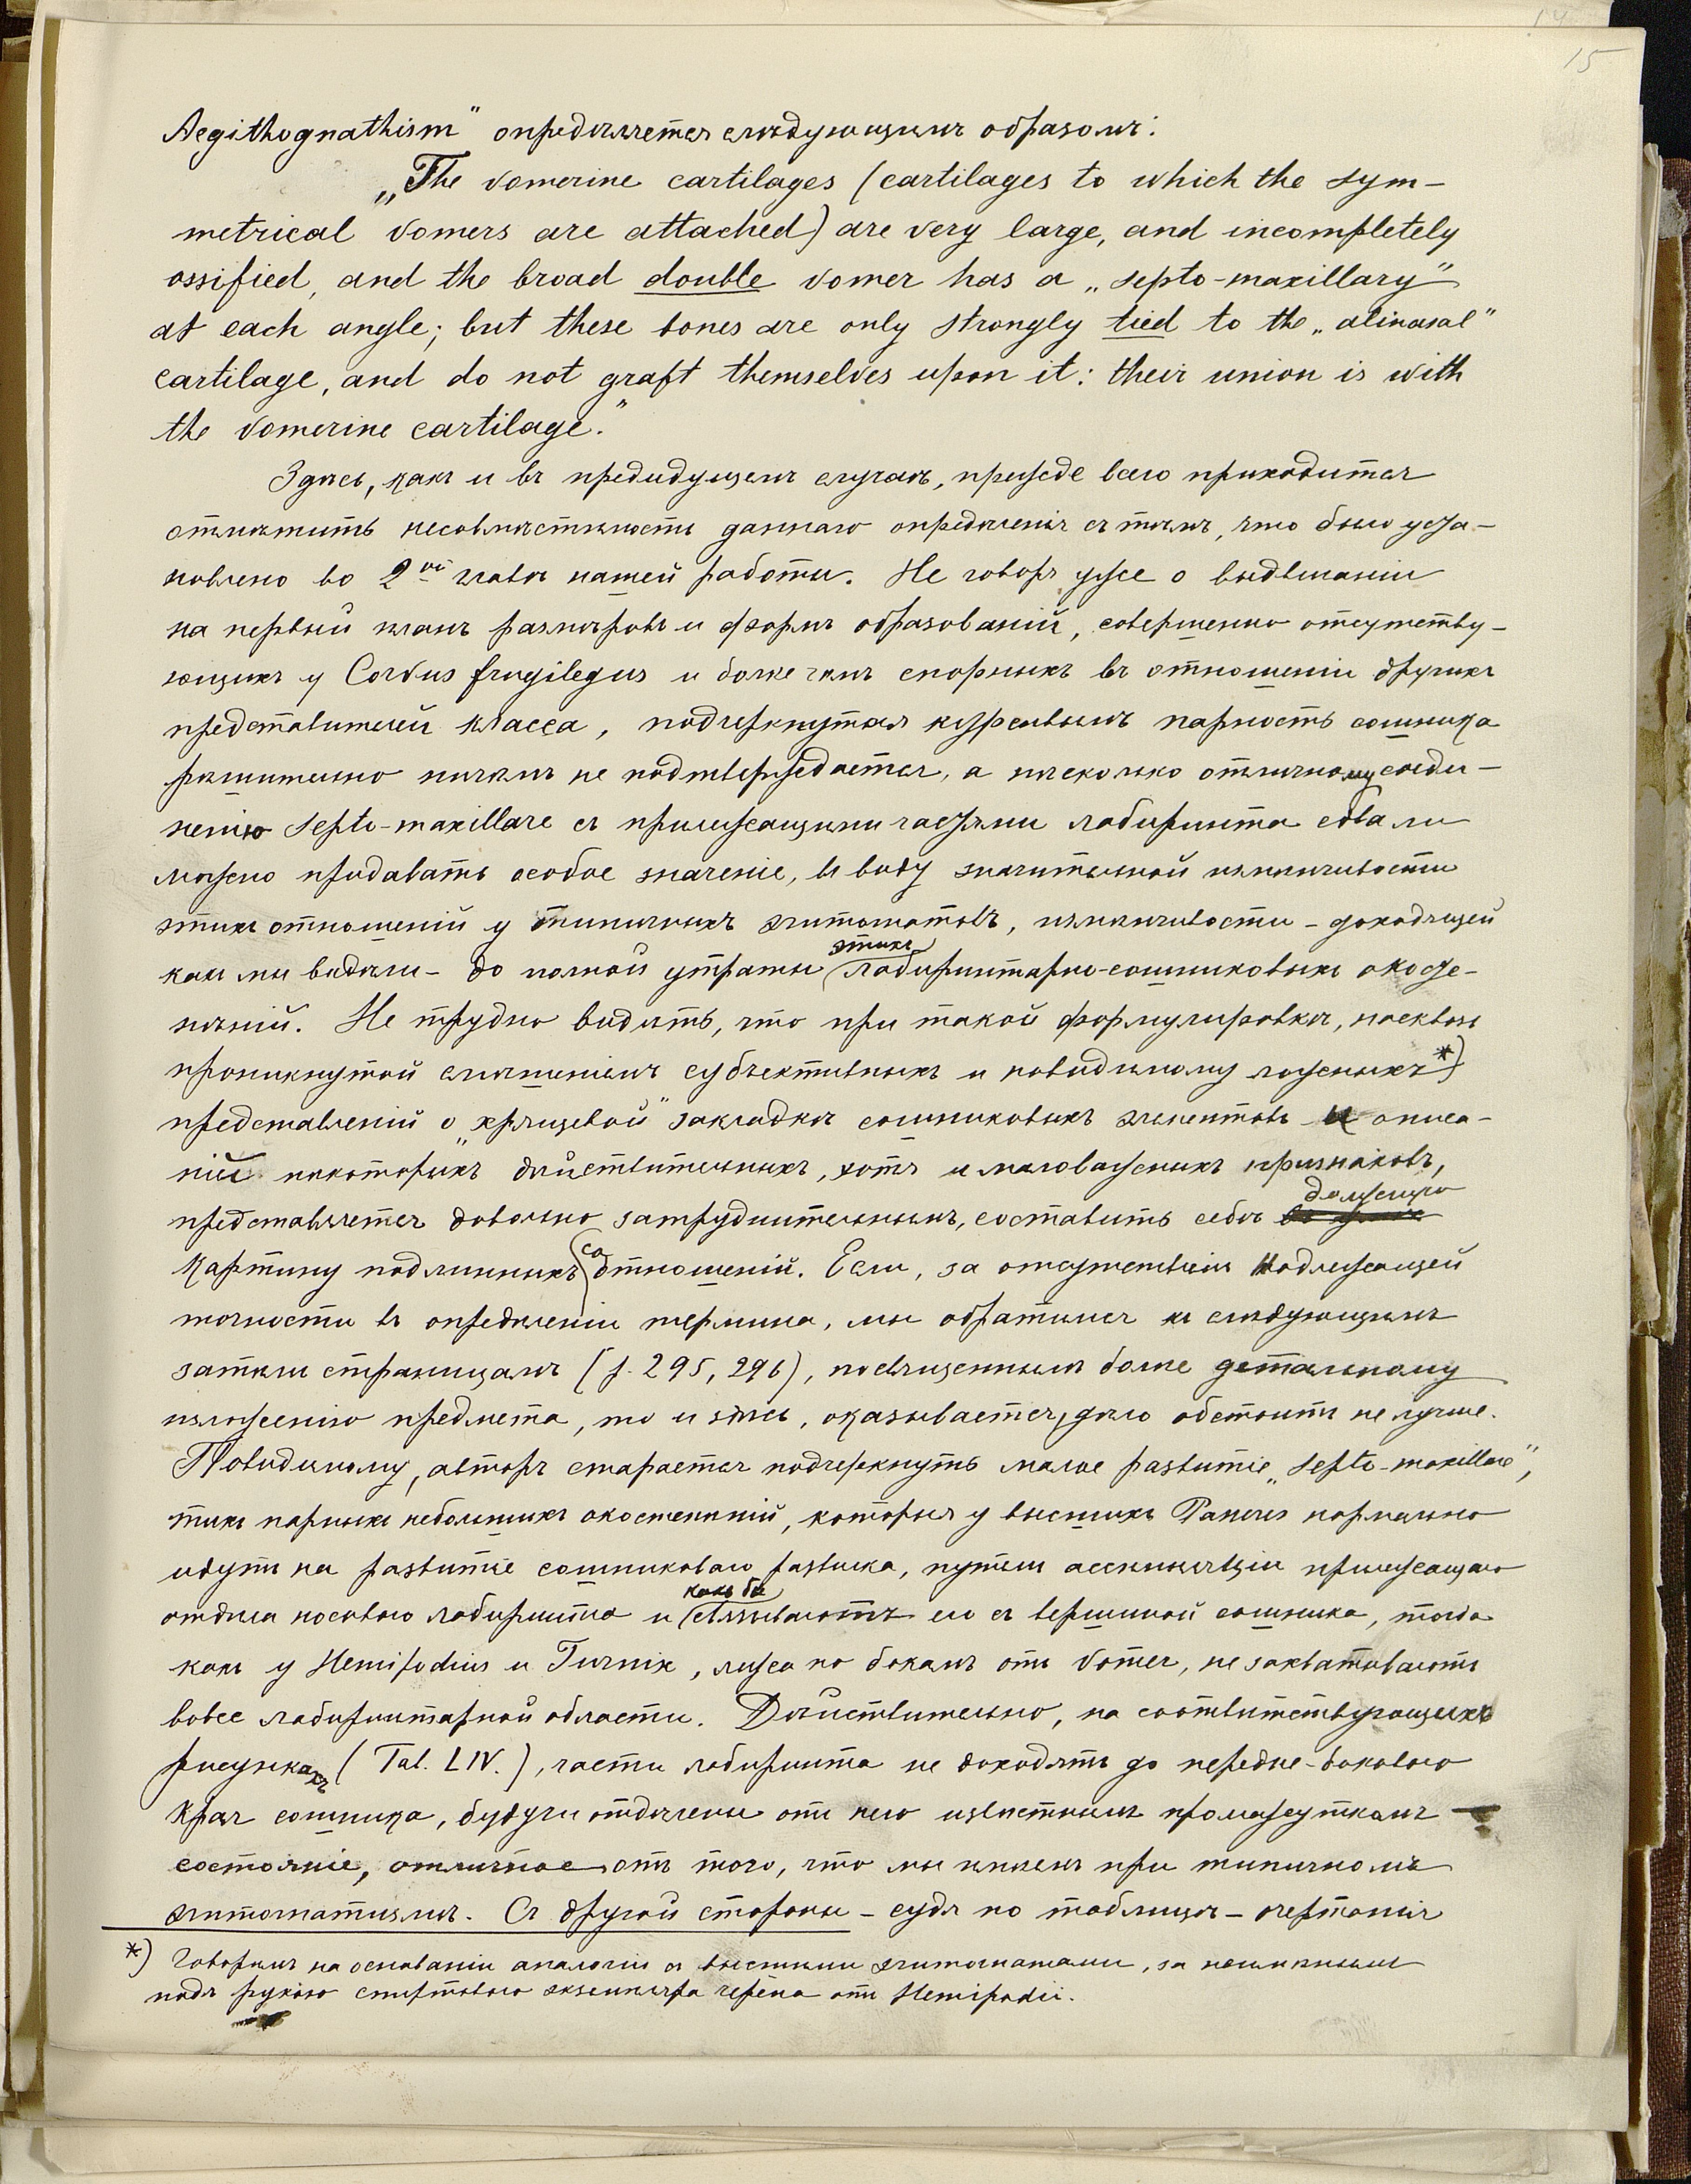 15
Aegithognathism" опредѣляется слѣдующимъ образомъ:
„The vomerine cartilages (cartilages to which the sym-
metrical vomers are attached) are very large, and incompletely
ossified, and the broad double vomer has a „septo-maxillary"
at each angle; but these bones are only strongly tied to the „alinasal"
cartilage, and do not graft themselves upon it: their union is with
the vomerine cartilage."
Здѣсь, какъ и въ предидущемъ случаѣ, прежде всего приходится
отмѣтить несовмѣстимость даннаго опредѣленія съ тѣмъ, что было уста-
новлено во 2ой главѣ нашей работы. Не говоря уже о выдвиганіи
на первый планъ размѣровъ и формъ образованій, совершенно отсутству-
ющихъ у Corvus frugilegus и болѣе чѣмъ спорныхъ въ отношеніи другихъ
представителей класса, подчеркнутая курсивомъ парность сошника
рѣшительно ничѣмъ не подтверждается, а нѣсколько отличному соеди-
ненію septo-maxillare съ прилежащими частями лабиринта едва ли
можно придавать особое значеніе, въ виду значительной измѣнчивости
этихъ отношеній у типичныхъ эгитогнатовъ, измѣнчивости - доходящей
какъ мы видѣли - до полной утраты этихъ лабиринтарно-сошниковыхъ окосте-
нѣній. Не трудно видѣть, что при такой формулировкѣ, насквозь
проникнутой смѣшеніемъ субъективныхъ и повидимому ложныхъ *)
представленій о „хрящевой" закладкѣ сошниковыхъ элементовъ и описа-
ній нѣкоторыхъ дѣйствительныхъ, хотя и маловажныхъ признаковъ,
представляется довольно затруднительнымъ, составить себѣ должную
картину подлинныхъ соотношеній. Если, за отсутствіемъ надлежащей
точности въ опредѣленіи термина, мы обратимся къ слѣдующимъ
затѣмъ страницамъ (p. 295, 296), посвященнымъ болѣе детальному
изложенію предмета, то и здѣсь, оказывается, дѣло обстоитъ не лучше.
Повидимому, авторъ старается подчеркнуть малое развитіе „septo-maxillare",
тѣхъ парныхъ небольшихъ окостенѣній, которыя у высшихъ Passeres нормально
идутъ на развитіе сошниковаго развилка, путемъ ассимиляціи прилежащаго
отдѣла носоваго лабиринта и какъ бы связываютъ его съ вершиной сошника, тогда
какъ у Hemipodius и Turnix, лежа по бокамъ отъ vomer, не захватываютъ
вовсе лабиринтарной области. Дѣйствительно, на соотвѣтствующихъ
рисункахъ (Tab. LIV.), части лабиринта не доходятъ до передне-боковаго
края сошника, будучи отдѣлены отъ него извѣстнымъ промежуткомъ —
состояніе, отличное отъ того, что мы имѣемъ при типичномъ
эгитогнатизмѣ. Съ другой стороны - судя по таблицѣ - очертанія
*) Говоримъ на основаніи аналогіи съ высшими эгитогнатами, за неимѣніемъ
подъ рукою спиртоваго экземпляра черепа отъ Hemipodii.